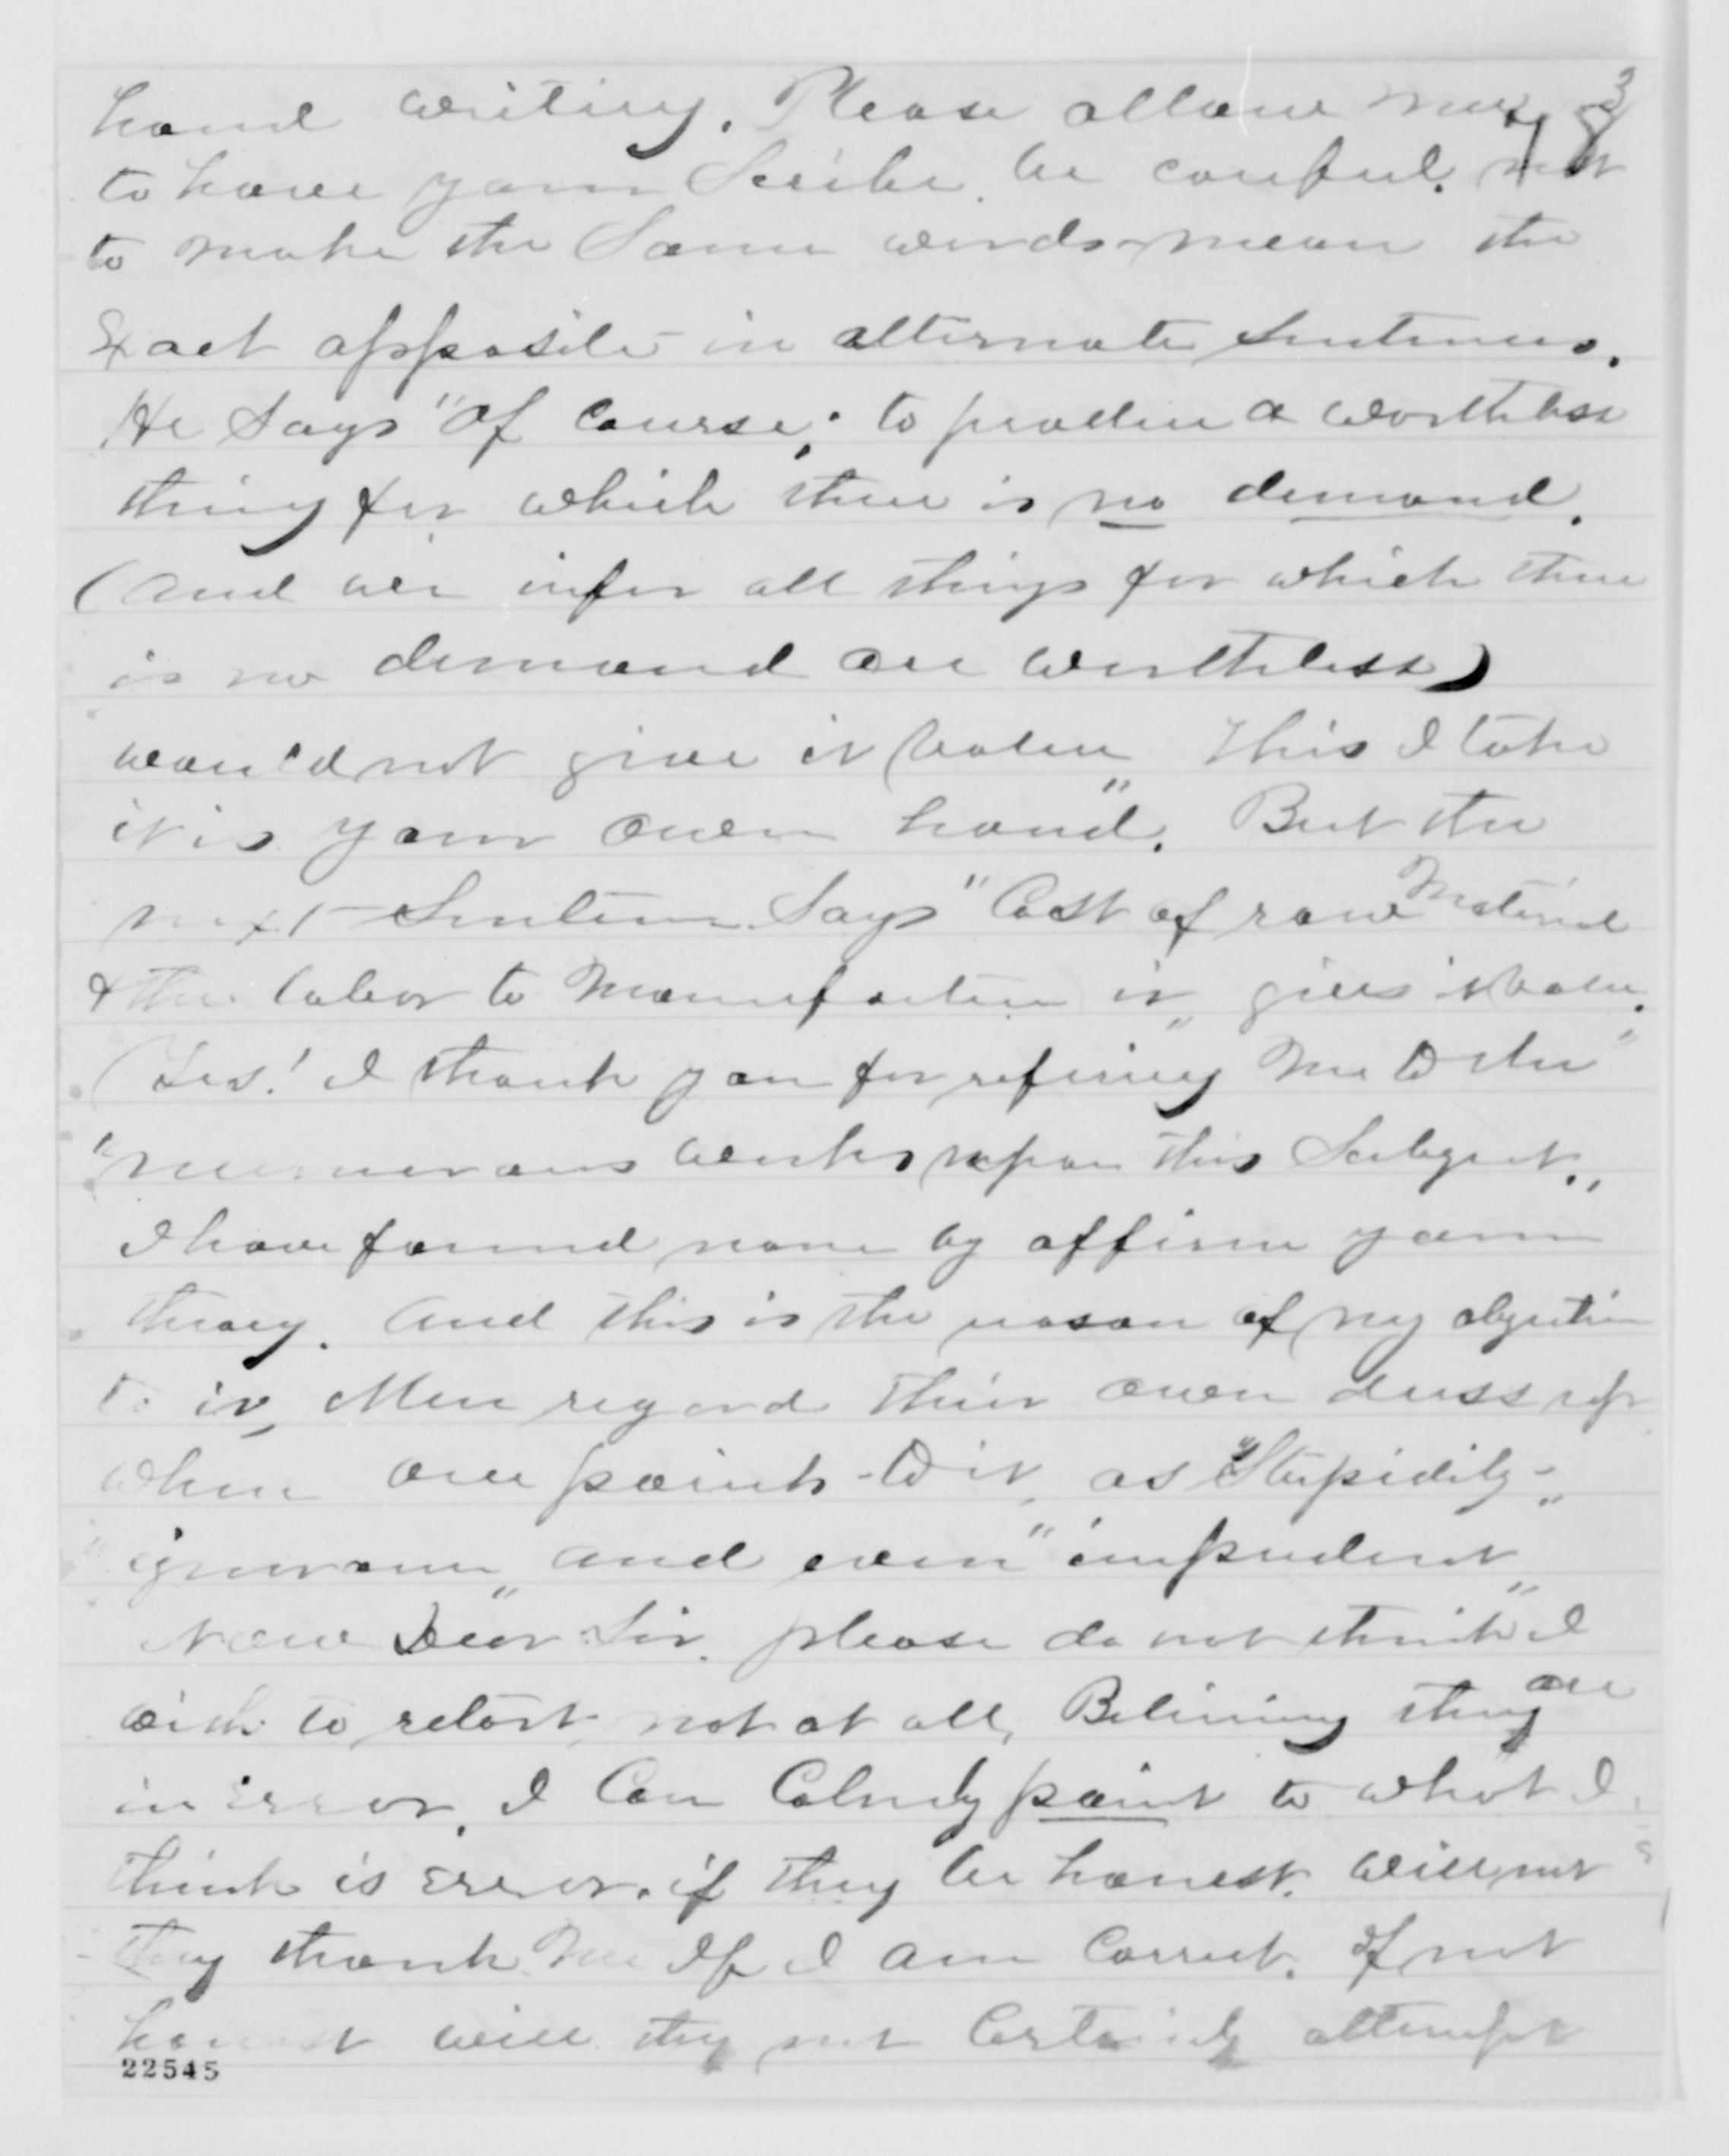 hand writing. Please allow me, 3
18
to have your Scribe be careful. not
to make the Same words mean the
Exact opposite in alternate Sentences.
He Says "Of Course; to produce a worthless
thing for which there is no demand.
(And we infer all things for which there
is no demand are worthless)
would not give it value" This I take
it is your own hand. But the
next Sentence Says "Cost of raw Material
& the labor to Manufacture it" gives it value.
(Yes! I thank you for refering me to the"
"numerous works upon this Subject."
I have found none to affirm your
theory. And this is the reason of my objection
to it, Men regard their own dress up
when one points to it, as "Stupidity"
"ignorance" and even "impudent"
Now Dear Sir. please do not think I
wish to retort, not at all, Believing they are
in Error, I Can Calmly point to what I
think is Error. if they be honest. will not
they thank Me If I am Correct. If not
honest will they not Certainly attempt
22545